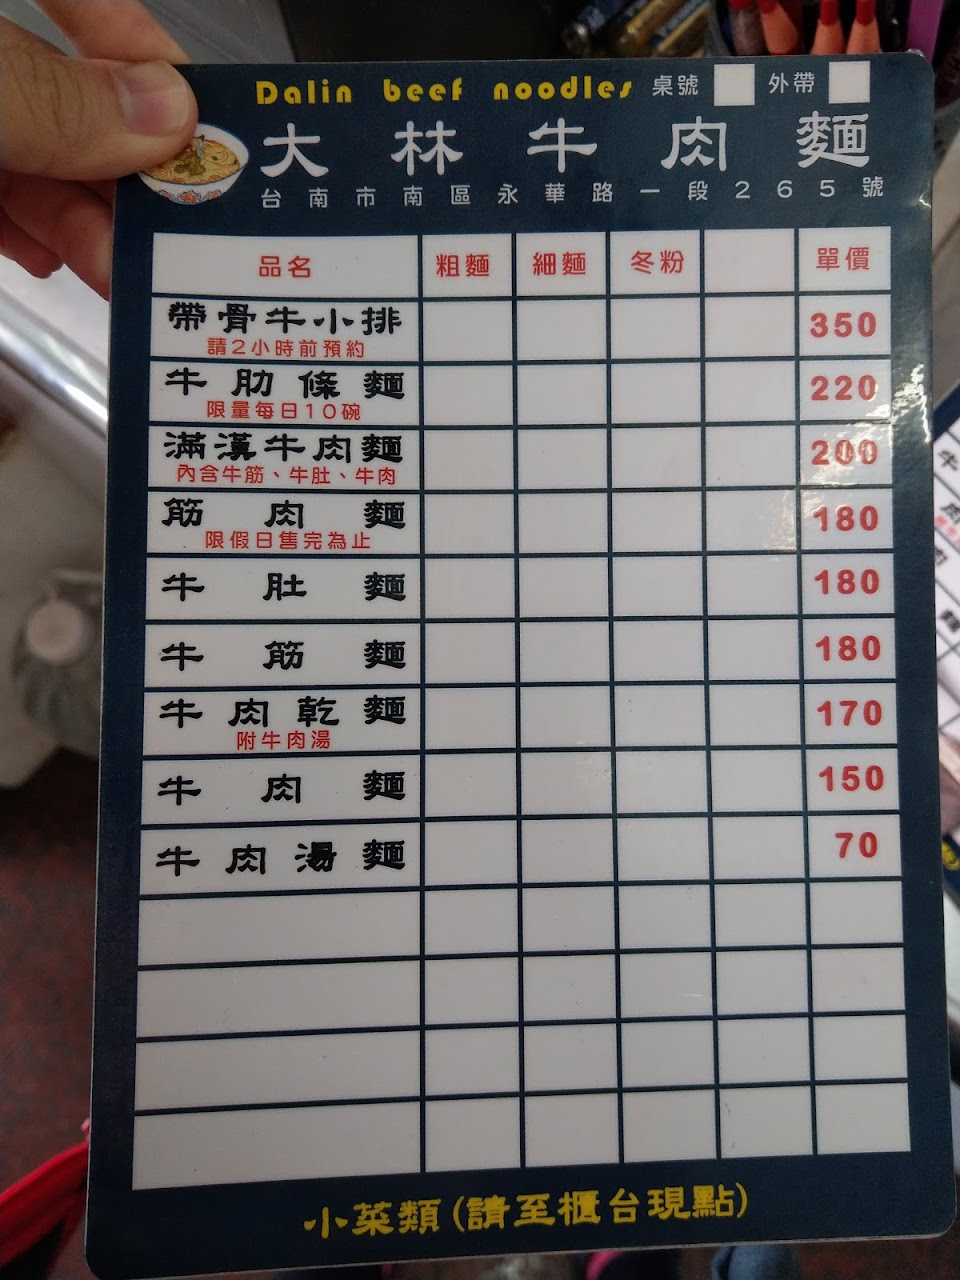 Dalin beef noodles 桌號 外帶
大林牛肉麵
台南市南區永華路一段265號
品名 粗麵 細麵 冬粉 單價
帶骨牛小排 350
請2小時前預約
牛肋條麵 220
限量每日10碗
滿漢牛肉麵 200
內含牛筋、牛肚、牛肉
筋肉麵 180
限假日售完為止
牛肚麵 180
牛筋麵 180
牛肉乾麵 170
附牛肉湯
牛肉麵 150
牛肉湯麵 70
小菜類(請至櫃台現點)